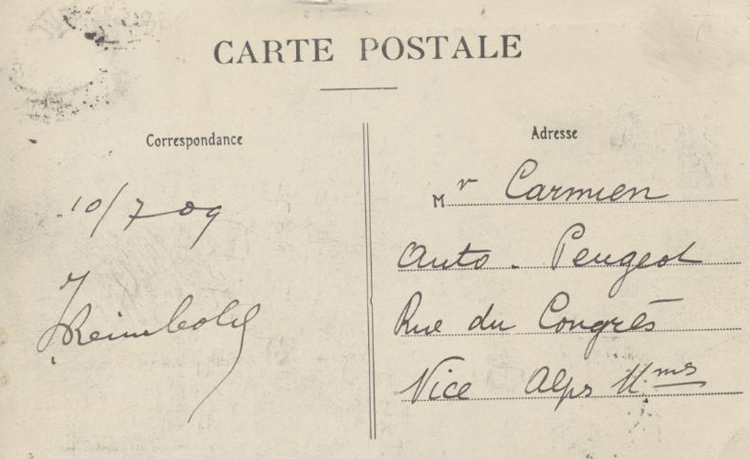 CARTE POSTALE
Correspondance
10/7 09
Reimbold
Adresse
Mr Carmien
Auto. Peugeot
Rue du Congrès
Nice Alps Mmes